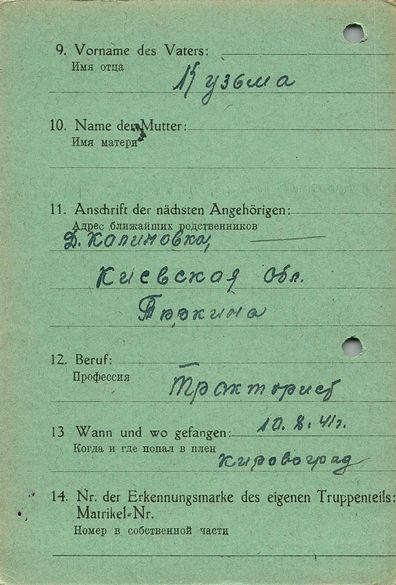 9. Vorname des Vaters:
Имя отца
Кузьма
10. Name der Mutter:
Имя матери
11. Anschrift der nächsten Angehörigen:
Адрес ближайших родственников
Д. Калиновка,
Киевская обл.
12. Beruf:
Профессия
Тракторист
13 Wann und wo gefangen: 10.8.41г.
Когда и где попал в плен
Кировоград
14. Nr. der Erkennungsmarke des eigenen Truppenteils:
Matrikel-Nr.
Номер в собственной части